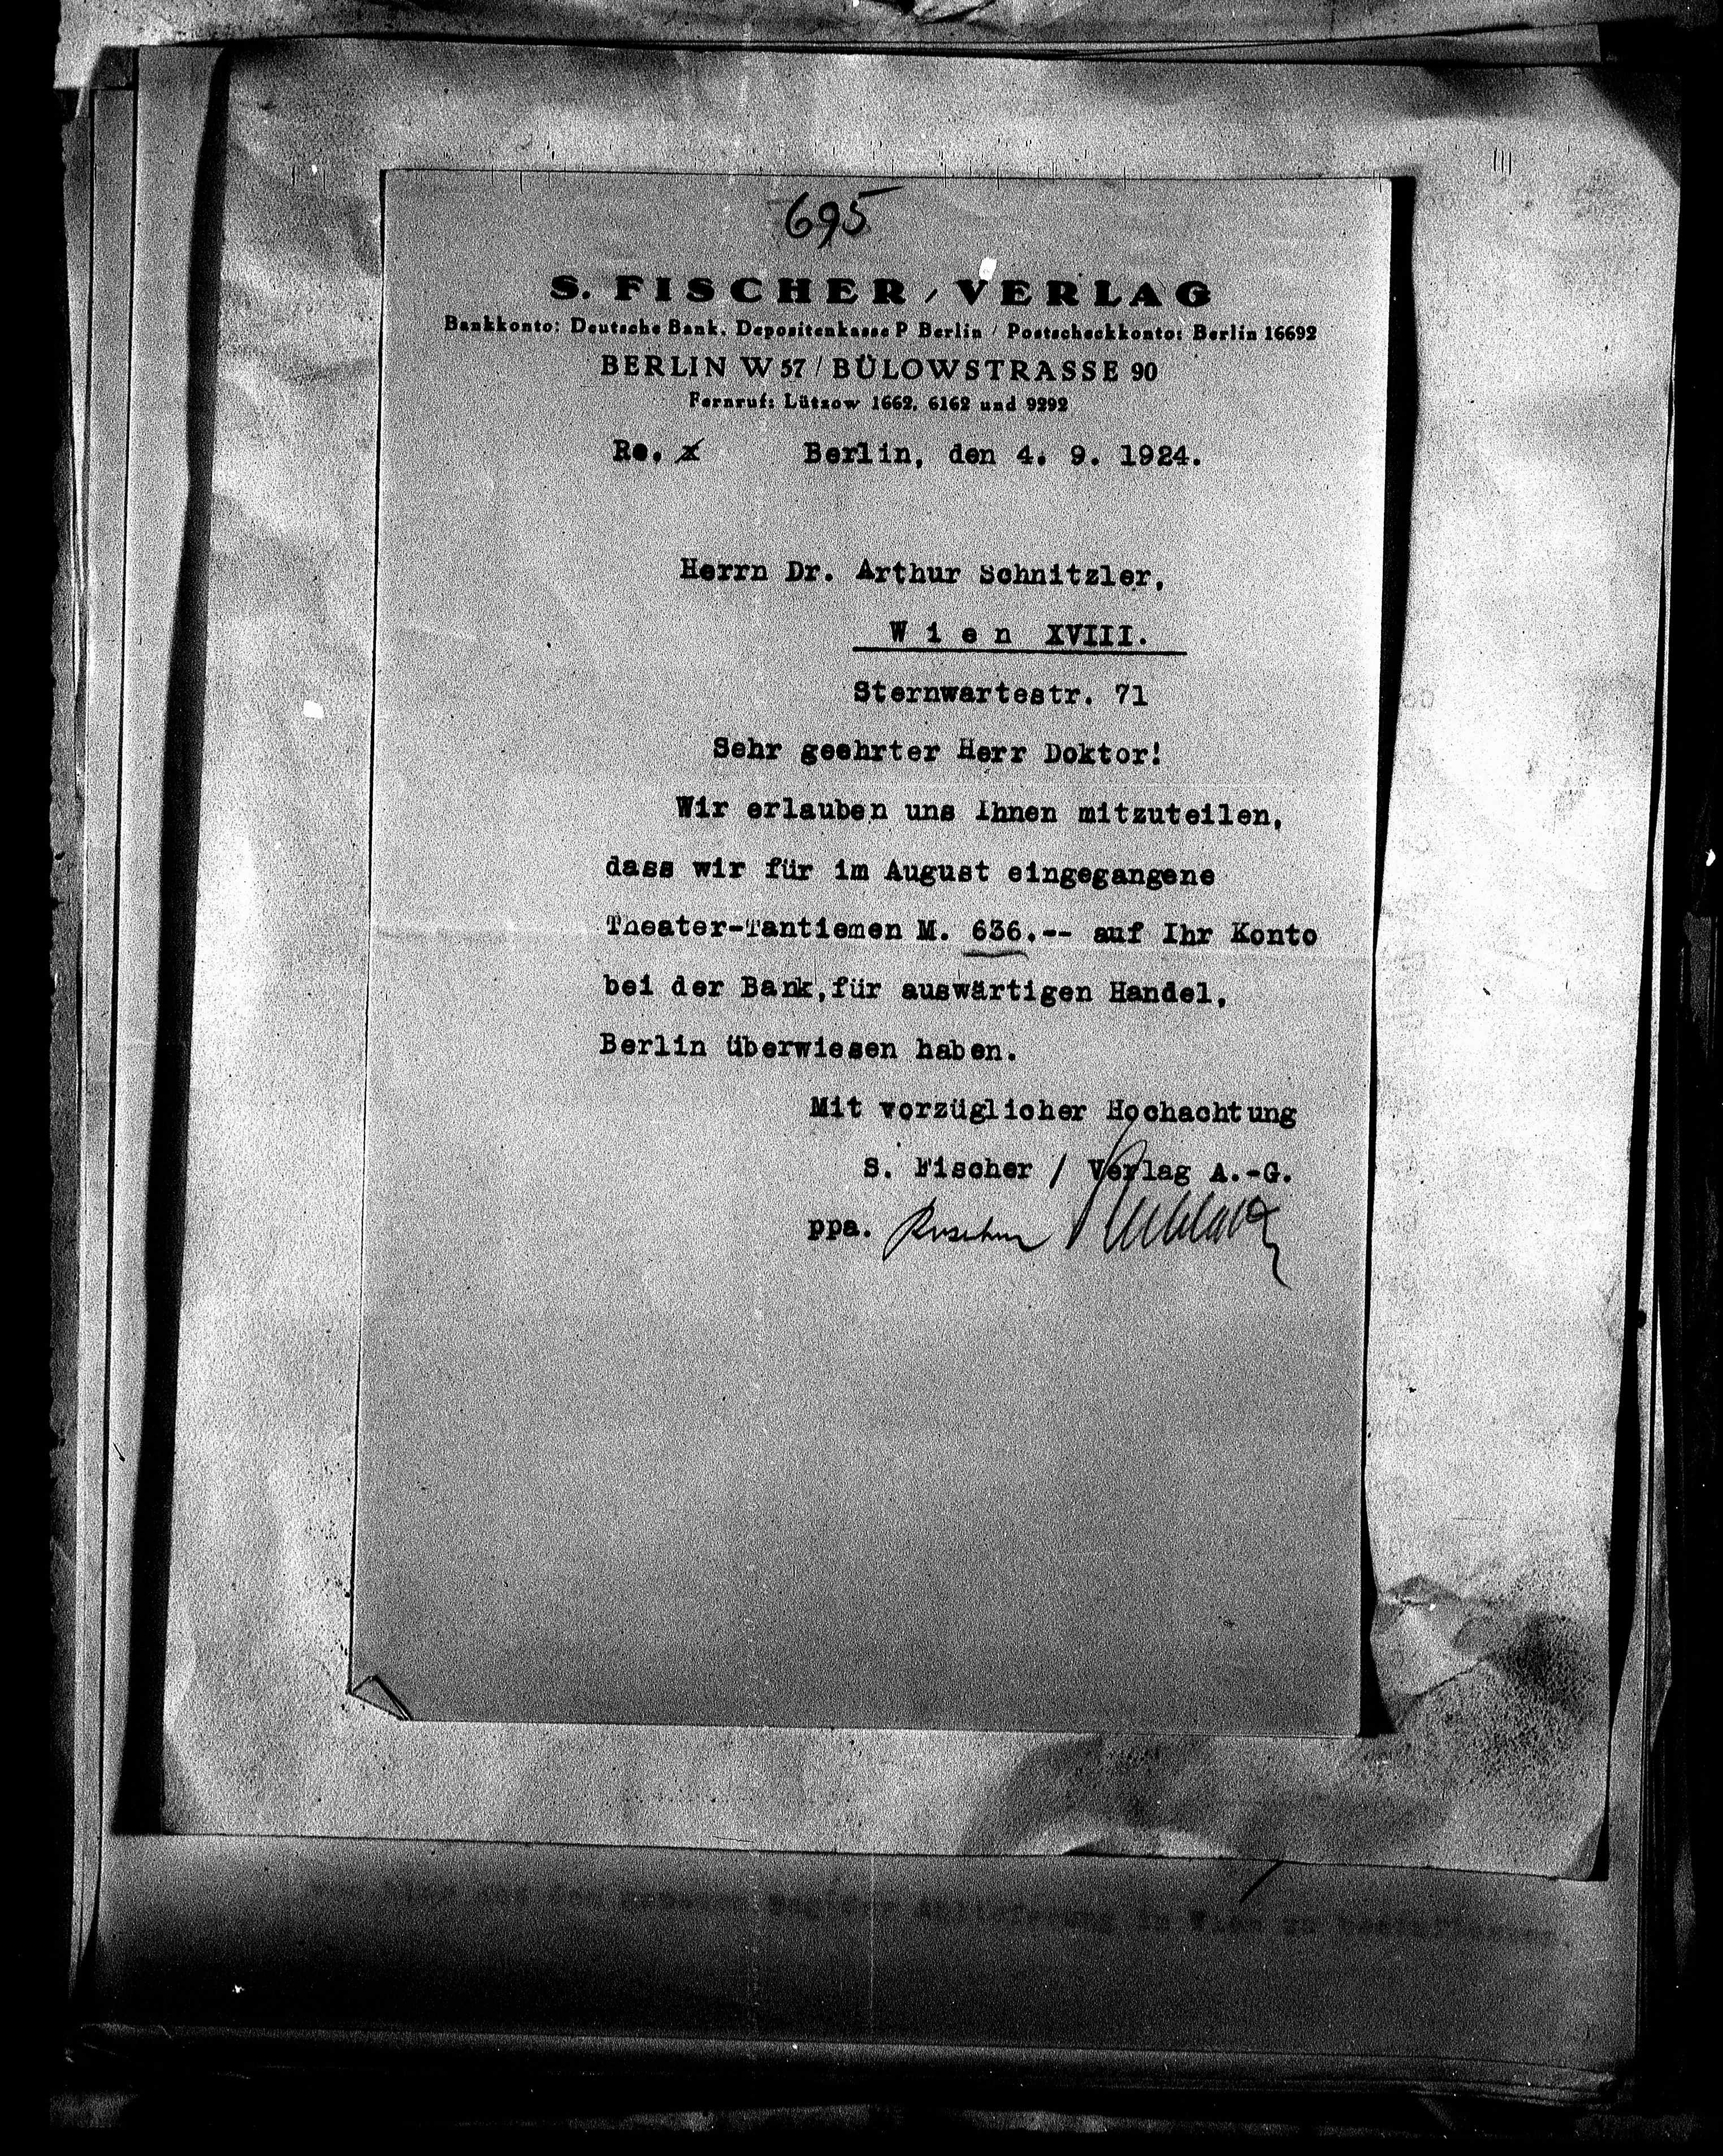 695
S. FISCHER / VERLAG
Bankkonto: Deutsche Bank, Depositenkasse P Berlin / Postscheckkonto: Berlin 16692
BERLIN W 57 / BÜLOWSTRASSE 90
Fernruf: Lützow 1662, 6162 und 9292
Re. x Berlin, den 4. 9. 1924.
Herrn Dr. Arthur Schnitzler,
W i e n XVIII.
Sternwartestr. 71
Sehr geehrter Herr Doktor!
Wir erlauben uns Ihnen mitzuteilen,
dass wir für im August eingegangene
Theater-Tantiemen M. 636.-- auf Ihr Konto
bei der Bank,für auswärtigen Handel,
Berlin überwiesen haben.
Mit vorzüglicher Hochachtung
S. Fischer / Verlag A.-G.
ppa.